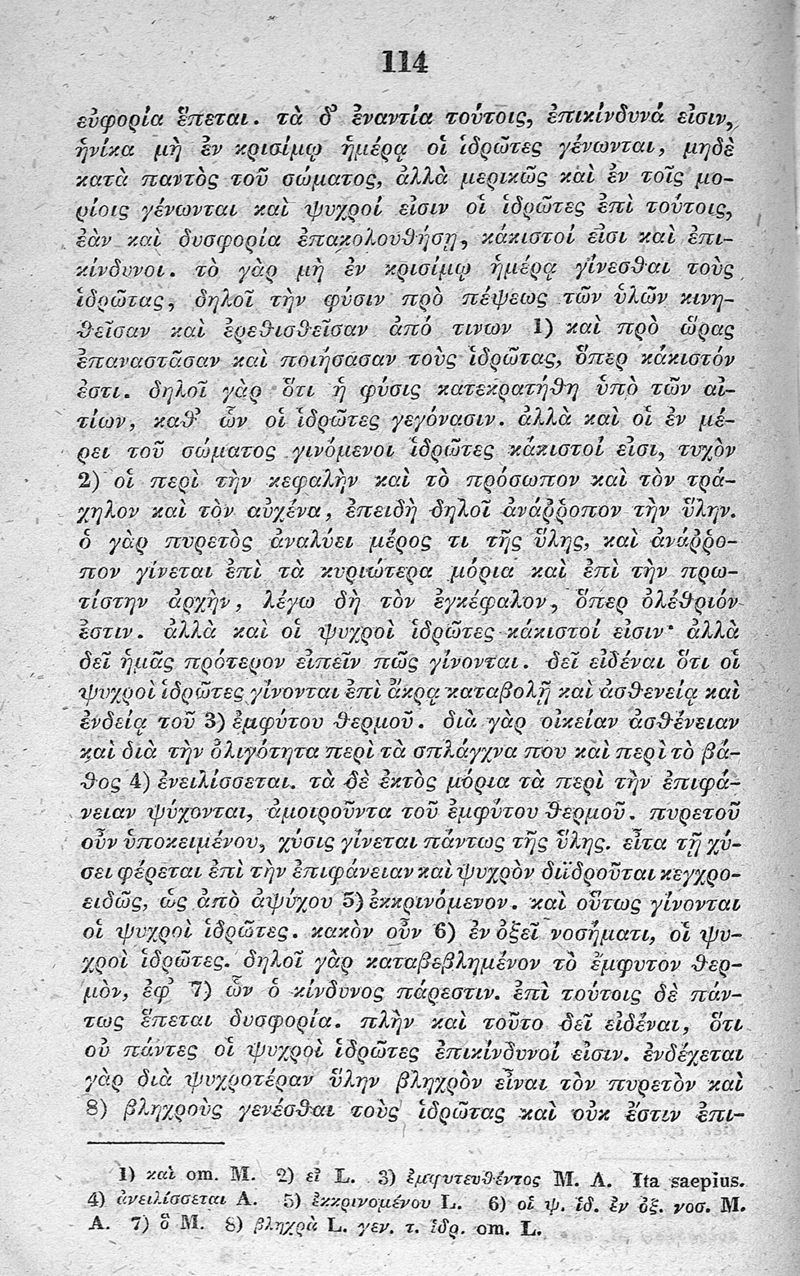 114
εὐφορία ἕπεται. τὰ δ᾽ ἐναντία τούτοις, ἐπικίνδυνά εἰσιν,
ἡνίκα μὴ ἐν κρισίμῳ ἡμέρᾳ οἱ ἱδρῶτες γένωνται, μηδὲ
κατὰ παντὸς τοῦ σώματος, ἀλλὰ μερικῶς καὶ ἐν τοῖς μο-
ρίοις γένωνται καὶ ψυχροί εἰσιν οἱ ἱδρῶτες ἐπὶ τούτοις,
ἐὰν καὶ δυσφορία ἐπακολουθήσῃ, κάκιστοί εἰσι καὶ ἐπι-
κίνδυνοι. τὸ γὰρ μὴ ἐν κρισίμῳ ἡμέρᾳ γίνεσθαι τοὺς
ἱδρῶτας, δηλοῖ τὴν φύσιν πρὸ πέψεως τῶν ὑλῶν κινη-
θεῖσαν καὶ ἐρεθισθεῖσαν ἀπό τινων 1) καὶ πρὸ ὥρας
ἐπαναστᾶσαν καὶ ποιήσασαν τοὺς ἱδρῶτας, ὅπερ κάκιστόν
ἐστι. δηλοῖ γὰρ ὅτι ἡ φύσις κατεκρατήθη ὑπὸ τῶν αἰ-
τίων, καθ᾽ ὧν οἱ ἱδρῶτες γεγόνασιν. ἀλλὰ καὶ οἱ ἐν μέ-
ρει τοῦ σώματος γινόμενοι ἱδρῶτες κάκιστοί εἰσι, τυχὸν
2) οἱ περὶ τὴν κεφαλὴν καὶ τὸ πρόσωπον καὶ τὸν τρά-
χηλον καὶ τὸν αὐχένα, ἐπειδὴ δηλοῖ ἀνάῤῥοπον τὴν ὕλην.
ὁ γὰρ πυρετὸς ἀναλύει μέρος τι τῆς ὕλης, καὶ ἀνάῤῥο-
πον γίνεται ἐπὶ τὰ κυριώτερα μόρια καὶ ἐπὶ τὴν πρω-
τίστην ἀρχὴν, λέγω δὴ τὸν ἐγκέφαλον, ὅπερ ὀλέθριόν
ἐστιν. ἀλλὰ καὶ οἱ ψυχροὶ ἱδρῶτες κάκιστοί εἰσιν· ἀλλὰ
δεῖ ἡμᾶς πρότερον εἰπεῖν πῶς γίνονται. δεῖ εἰδέναι ὅτι οἱ
ψυχροὶ ἱδρῶτες γίνονται ἐπὶ ἄκρᾳ καταβολῇ καὶ ἀσθενείᾳ καὶ
ἐνδείᾳ τοῦ 3) ἐμφύτου θερμοῦ. διὰ γὰρ οἰκείαν ἀσθένειαν
καὶ διὰ τὴν ὀλιγότητα περὶ τὰ σπλάγχνα που καὶ περὶ τὸ βά-
θος 4) ἐνειλίσσεται. τὰ δὲ ἐκτὸς μόρια τὰ περὶ τὴν ἐπιφά-
νειαν ψύχονται, ἀμοιροῦντα τοῦ ἐμφύτου θερμοῦ. πυρετοῦ
οὖν ὑποκειμένου, χύσις γίνεται πάντως τῆς ὕλης. εἶτα τῇ χύ-
σει φέρεται ἐπὶ τὴν ἐπιφάνειαν καὶ ψυχρὸν διϊδροῦται κεγχρο-
ειδῶς, ὡς ἀπὸ ἀψύχου 5) ἐκκρινόμενον. καὶ οὕτως γίνονται
οἱ ψυχροὶ ἱδρῶτες. κακὸν οὖν 6) ἐν ὀξεῖ νοσήματι, οἱ ψυ-
χροὶ ἱδρῶτες. δηλοῖ γὰρ καταβεβλημένον τὸ ἔμφυτον θερ-
μὸν, ἐφ᾽ 7) ὧν ὁ κίνδυνος πάρεστιν. ἐπὶ τούτοις δὲ πάν-
τως ἕπεται δυσφορία. πλὴν καὶ τοῦτο δεῖ εἰδέναι, ὅτι
οὐ πάντες οἱ ψυχροὶ ἱδρῶτες ἐπικίνδυνοί εἰσιν. ἐνδέχεται
γὰρ διὰ ψυχροτέραν ὕλην βληχρὸν εἶναι τὸν πυρετὸν καὶ
8) βληχροὺς γενέσθαι τοὺς ἱδρῶτας καὶ οὐκ ἔστιν ἐπι-
1) καὶ om. M. 2) εἰ L. 3) ἐμφυτευθέντος M. A. Ita saepius.
4) ἀνειλίσσεται A. 5) ἐκκρινομένου L. 6) οἱ ψ. ἱδ. ἐν ὀξ. νοσ. M.
A. 7) ὃ M. 8) βληχρὰ L. γεν. τ. ἱδρ. om. L.